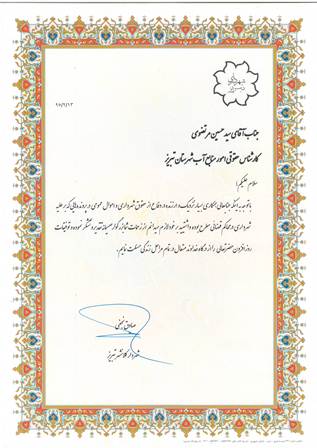 ۹۶/۹/۱۳
جناب آقای سید حسین مرتضوی
کارشناس حقوقی امور منابع آب شهرستان تبریز
سلام علیکم؛
با توجه به اینکه جنابعالی همکاری بسیار نزدیک و ارزنده در دفاع از حقوق شهرداری و اموال عمومی در پرونده‌هایی که بر علیه
شهرداری در محاکم قضائی مطرح بوده داشتید بر خود لازم میدانم از زحمات شما بزرگوار صمیمانه تقدیر و تشکر نموده و توفیقات
روزافزون حضرتعالی را از درگاه خداوند متعال در تمام مراحل زندگی مسئلت نمایم.
صادق نجفی
شهردار کلانشهر تبریز